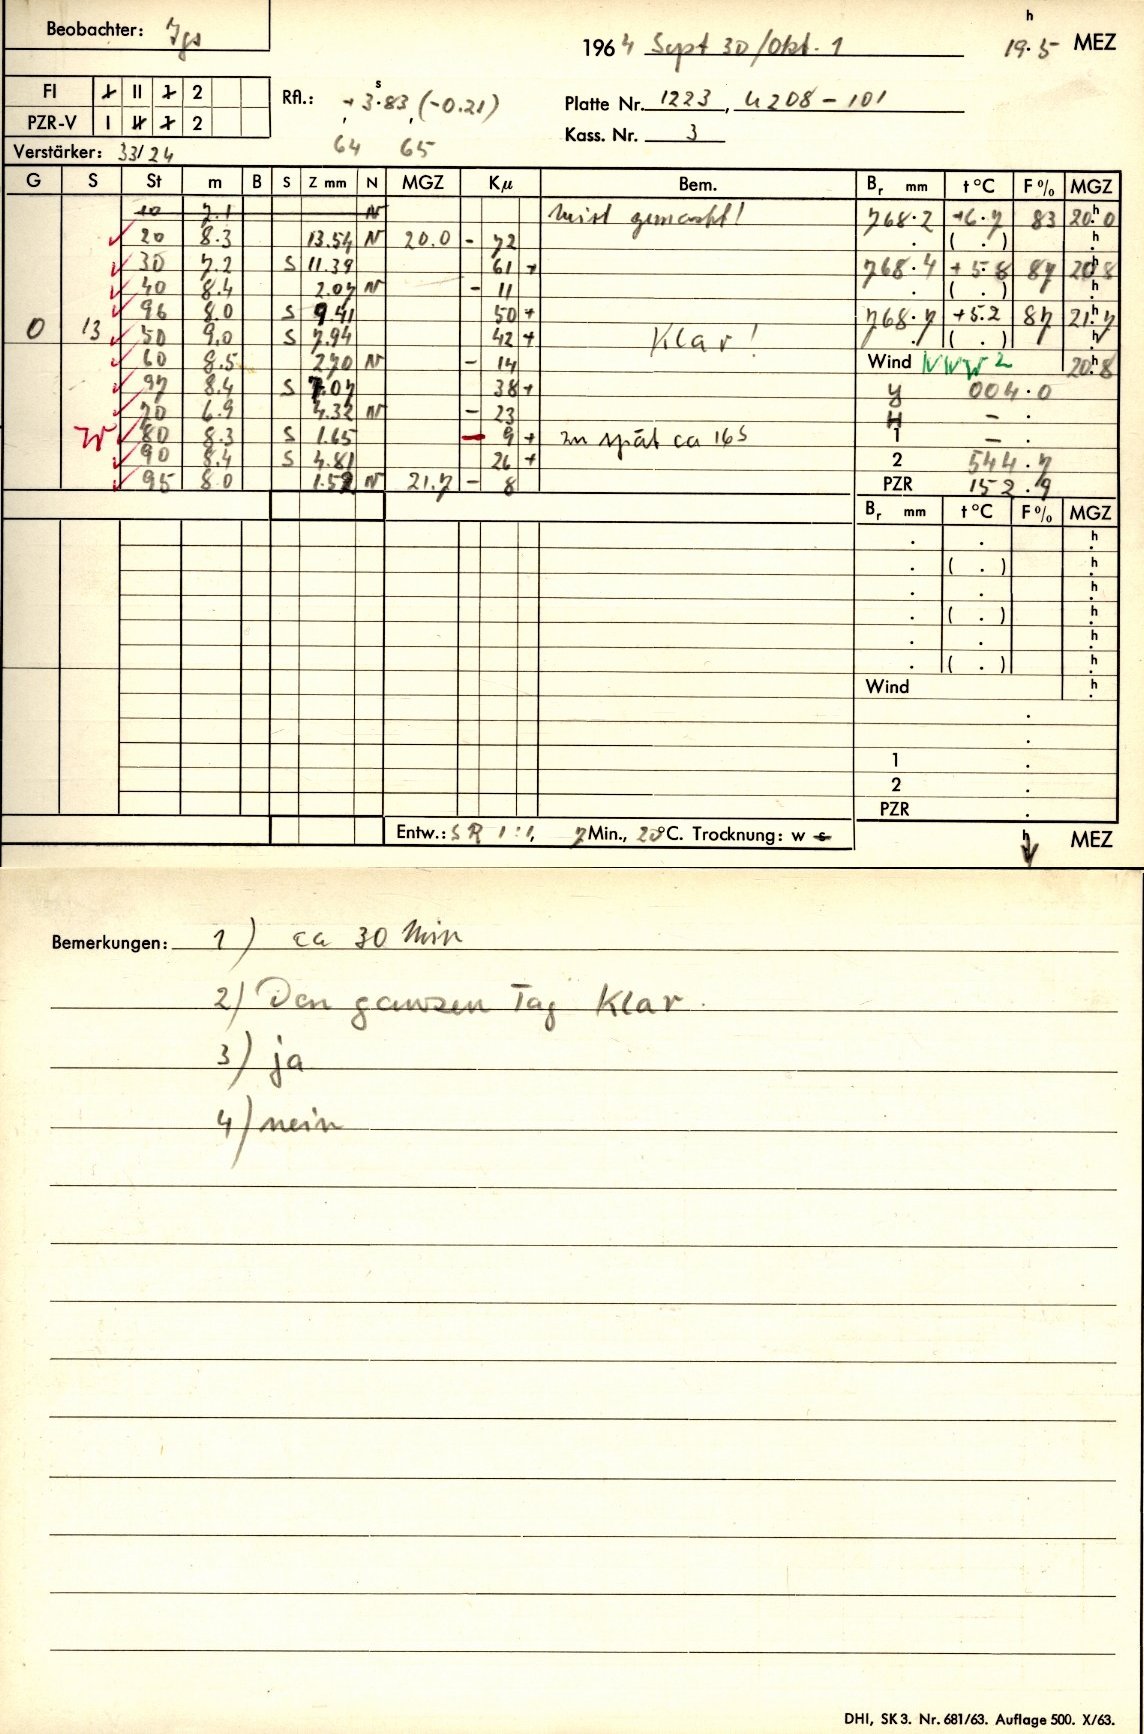 Beobachter: Jgs
1964 Sept 30/Okt. 1
h
19.5 MEZ
FI I II 1 2
PZR-V I II 1 2
Rfl.: +3.83 (-0.21)
s
64 65
Platte Nr. 1223, 4208-101
Kass. Nr. 3
Verstärker: 33/24
G S St m B S Z mm N MGZ Kμ Bem. Br mm t °C F % MGZ
10 7.1 N Mist gemacht! 768.2 +6.7 83 20.0 h
20 8.3 13.54 N 20.0 - 72 . ( . ) h
30 7.2 S 11.39 61 + 768.4 +5.8 87 20.8 h
40 8.4 2.07 N - 11 . ( . ) h
96 8.0 S 9.41 50 + 768.7 +5.2 87 21.7 h
0 13 50 9.0 S 7.94 42 + Klar! . ( . ) h
60 8.5 2.70 N - 14 Wind NWW 2 20.8 h
97 8.4 S 7.07 38 + y 004.0
70 6.9 4.32 N - 23 H - .
W 80 8.3 S 1.65 - 9 + zu spät ca 16s 1 - .
90 8.4 S 4.81 26 + 2 544.7
95 8.0 1.52 N 21.7 - 8 PZR 152.9
Br mm t °C F % MGZ
. . h
. ( . ) h
. . h
. ( . ) h
. . h
. ( . ) h
Wind h
.
.
1 .
2 .
PZR .
Entw.: SR 1:1, 7 Min., 20°C. Trocknung: w s
h
MEZ
Bemerkungen: 1) ca 30 Min
2) Den ganzen Tag Klar.
3) ja
4) nein
DHI, SK 3. Nr. 681/63. Auflage 500. X/63.